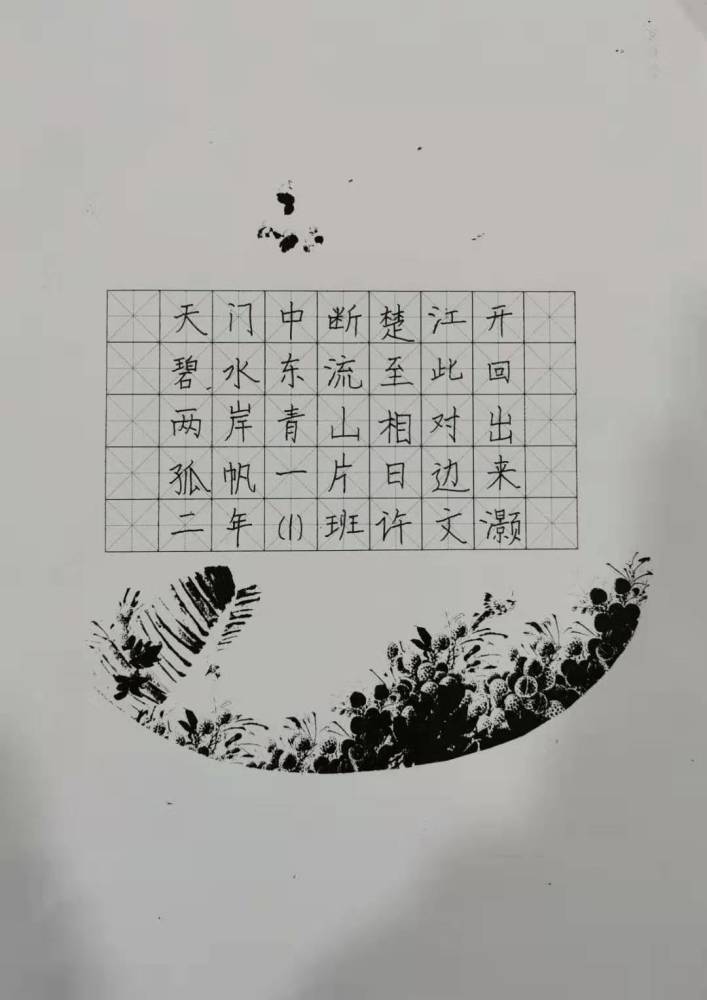 天门中断楚江开
碧水东流至此回
两岸青山相对出
孤帆一片日边来
二年(1)班许文灏